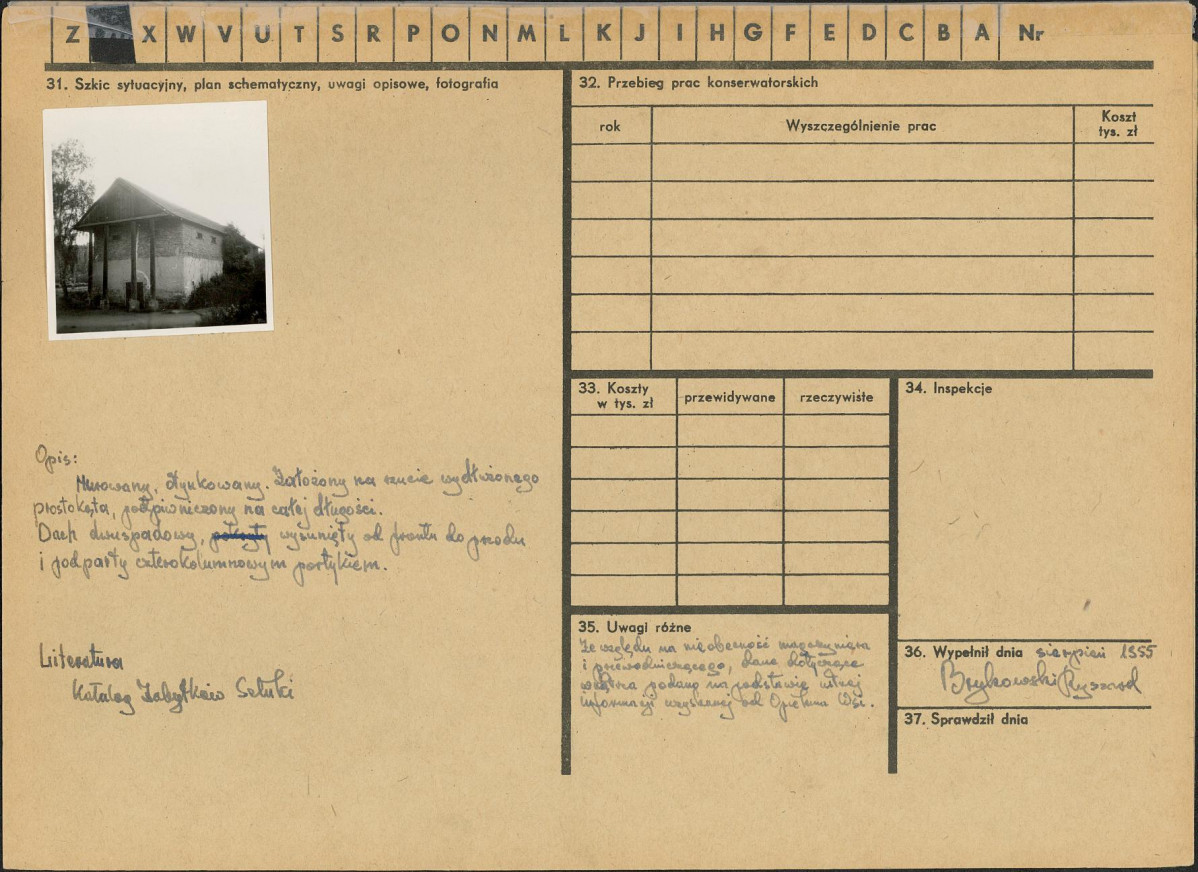 Z X W V U T S R P O N M L K J I H G F E D C B A Nr
31. Szkic sytuacyjny, plan schematyczny, uwagi opisowe, fotografia
Opis:
Murowany, otynkowany. Założony na rzucie wydłużonego
prostokąta, podpiwniczony na całej długości.
Dach dwuspadowy, pokryty wysunięty od frontu do przodu
i podparty czterokolumnowym portykiem.
Literatura
Katalog Zabytków Sztuki
32. Przebieg prac konserwatorskich
rok Wyszczególnienie prac Koszt
tys. zł
33. Koszty
w tys. zł przewidywane rzeczywiste
34. Inspekcje
35. Uwagi różne
Ze względu na nieobecność magazyniera
i przewodniczącego, dane dotyczące
wnętrza podano na podstawie ustnej
informacji uzyskanej od Opiekuna Wsi.
36. Wypełnił dnia sierpień 1955
Brykowski Ryszard
37. Sprawdził dnia